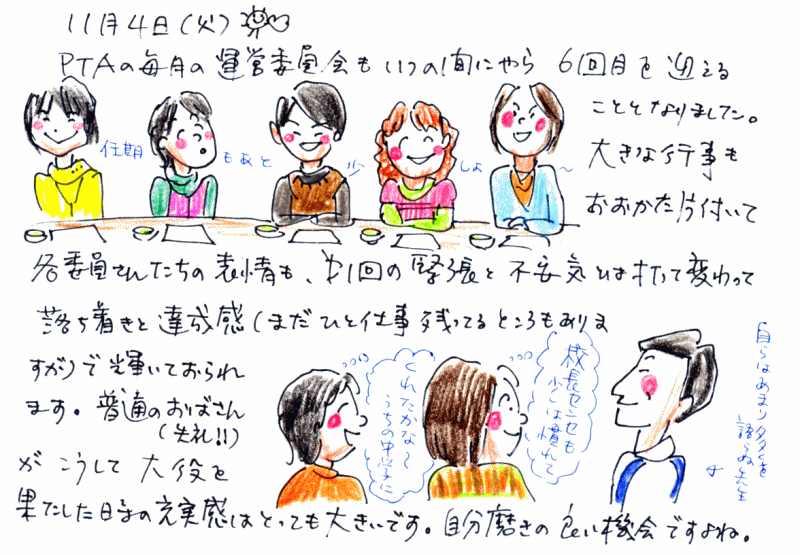 11月4日(火)
PTAの毎月の運営委員会もいつの間にやら 6回目を迎える
こととなりました。
任期 もあと 少 しよ 〜
大きな行事も
おおかた片付いて
各委員さんたちの表情も、第1回の緊張と不安気とは打って変わって
落ち着きと達成感(まだひと仕事残ってるところもありま
すが)で輝いておられ
ます。普通のおばさん
(失礼!!)
が こうして 大役を
果たした日々の充実感はとっても大きいです。自分磨きの良い機会ですよね。
成長センセも
少しは慣れて
くれたかな〜
うちの中学に
自らはあまり多くを
語らぬ先生